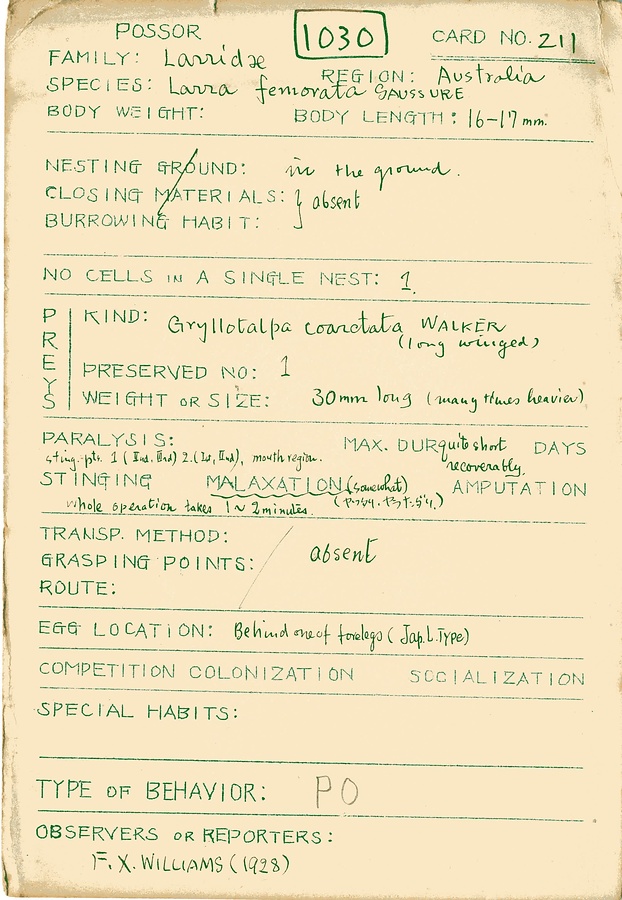 POSSOR 1030 CARD NO. 211
FAMILY: Larridae
REGION: Australia
SPECIES: Larra femorata SAUSSURE
BODY WEIGHT: BODY LENGTH: 16-17 mm.
NESTING GROUND: in the ground.
CLOSING MATERIALS: } absent
BURROWING HABIT:
NO CELLS IN A SINGLE NEST: 1.
PREYS
KIND: Gryllotalpa coarctata WALKER
(long winged)
PRESERVED NO: 1
WEIGHT OR SIZE: 30mm long (many times heavier)
PARALYSIS: MAX. DUR quite short DAYS
sting.-pts. 1 (IInd. IIInd) 2. (Ist, IInd), mouth region. recoverably.
STINGING MALAXATION (somewhat) AMPUTATION
whole operation takes 1~2 minutes.
TRANSP. METHOD:
GRASPING POINTS: absent
ROUTE:
EGG LOCATION: Behind one of forelegs (Jap. L. Type)
COMPETITION COLONIZATION SOCIALIZATION
SPECIAL HABITS:
TYPE OF BEHAVIOR: PO
OBSERVERS OR REPORTERS:
F. X. WILLIAMS (1928)